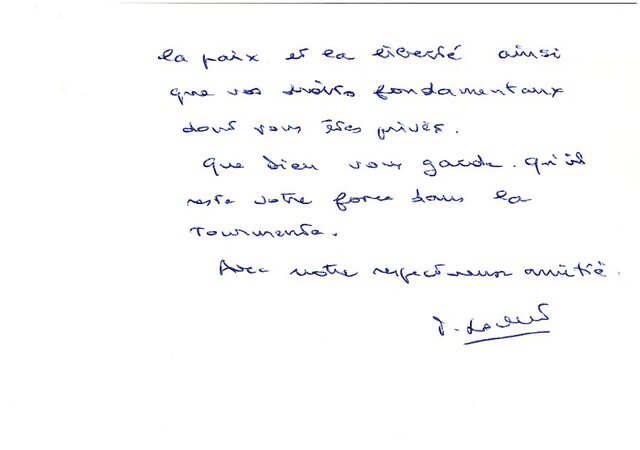 la paix et la liberté ainsi
que vos droits fondamentaux
dont vous êtes privés.
Que Dieu vous garde. Qu'il
reste votre force dans la
Tourmente.
Avec notre respectueuse amitié.